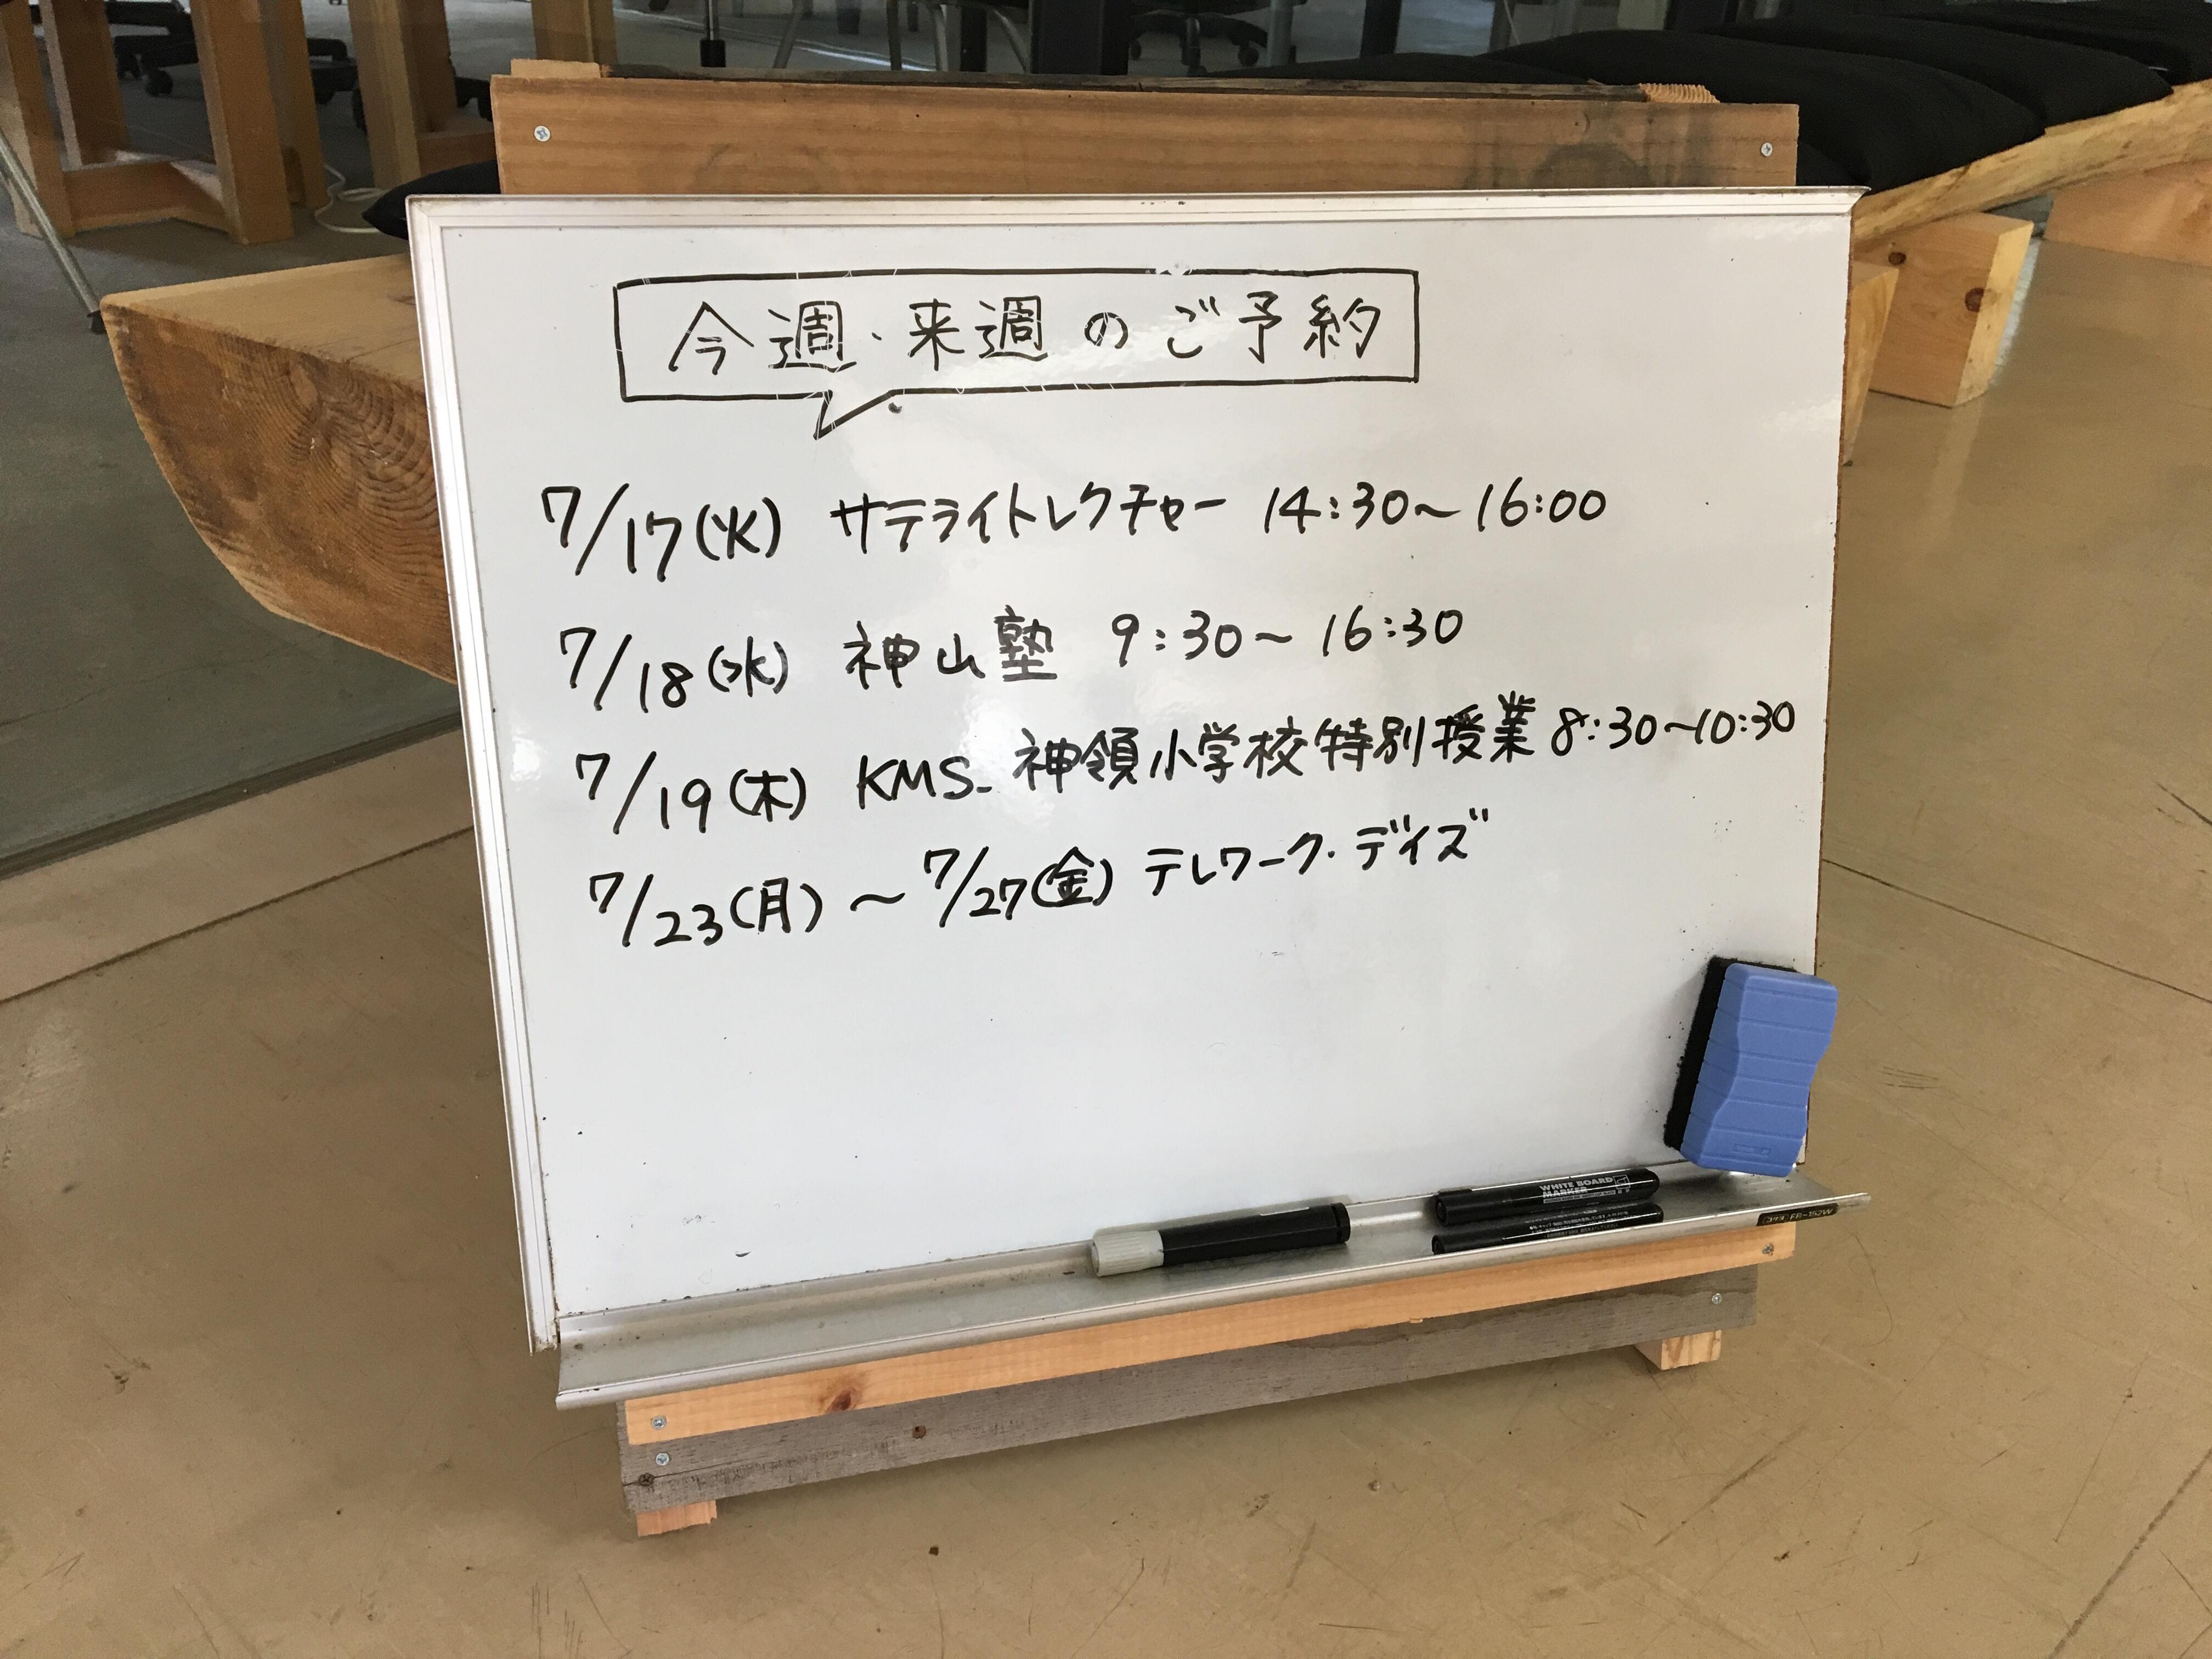 今週・来週のご予約
7/17(火) サテライトレクチャー 14:30〜16:00
7/18(水) 神山塾 9:30〜16:30
7/19(木) KMS_神領小学校特別授業 8:30〜10:30
7/23(月)〜7/27(金) テレワーク・デイズ
WHITE BOARD
MARKER